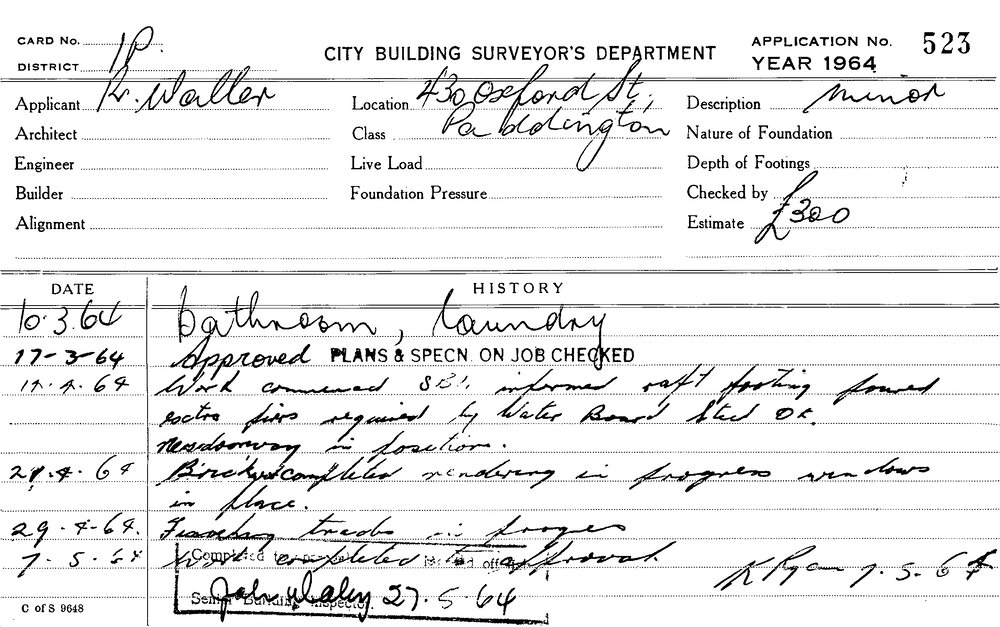 CARD No. 1P.
DISTRICT
CITY BUILDING SURVEYOR'S DEPARTMENT
APPLICATION No. 523
YEAR 1964
Applicant K. Waller
Location 430 Oxford St.
Description minor
Architect
Class Paddington
Nature of Foundation
Engineer
Live Load
Depth of Footings
Builder
Foundation Pressure
Checked by
Alignment
Estimate £300
DATE HISTORY
10.3.64 bathroom, laundry
17-3-64 Approved PLANS & SPECN. ON JOB CHECKED
4.64 Work commenced informed raft footing poured
extra piers required by Water Board Steel OK.
New doorway in position.
4.64 completed rendering in progress windows
in place.
29.4.64. trades in progress
7.5.64 Work completed to approval
K Ryan 7.5.64
Completed to
Senior Building Inspector.
27.5.64
C of S 9648